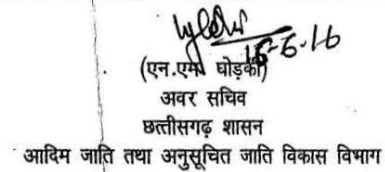 16-6-16
(एन.एम. घोड़की)
अवर सचिव
छत्तीसगढ़ शासन
आदिम जाति तथा अनुसूचित जाति विकास विभाग